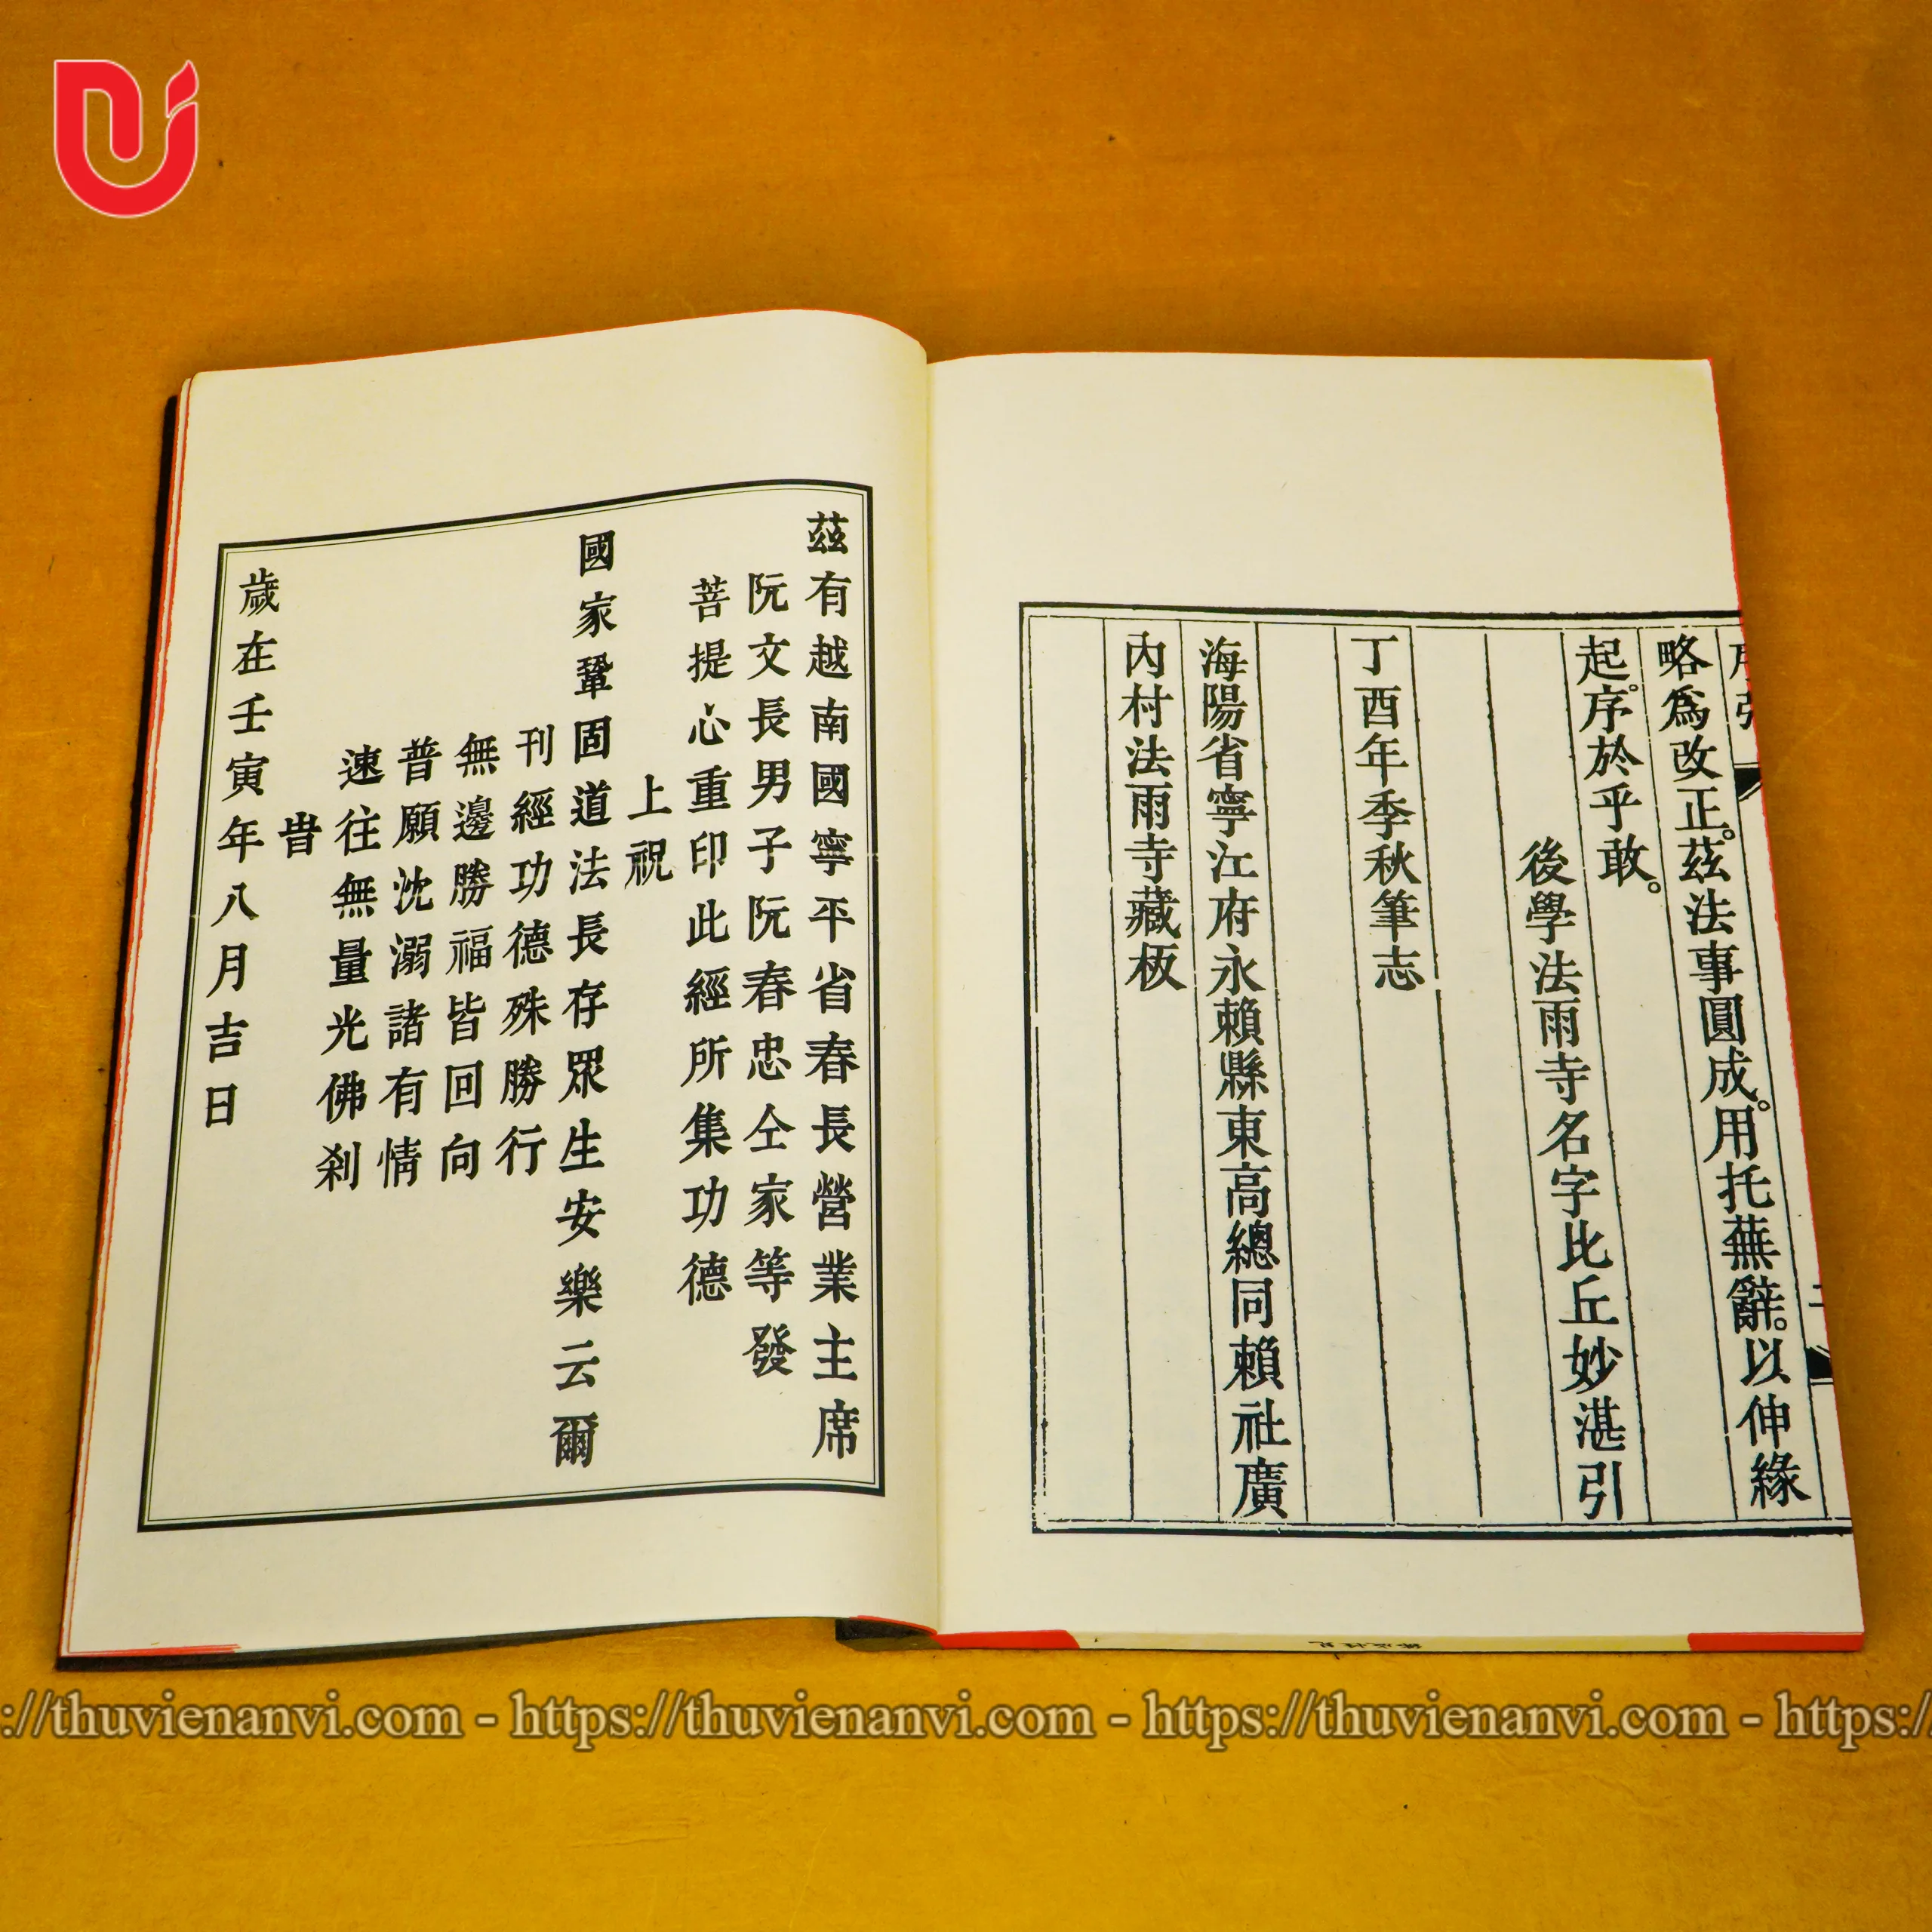 略爲改正。茲法事圓成。用托蕪辭。以伸緣
起。序於乎敢。
後學法雨寺名字比丘妙湛引
丁酉年季秋筆志
海陽省寧江府永賴縣東高總同賴社廣
內村法雨寺藏板
茲有越南國寧平省春長營業主席
阮文長男子阮春忠仝家等發
菩提心重印此經所集功德
上祝
國家鞏固道法長存眾生安樂云爾
刊經功德殊勝行
無邊勝福皆回向
普願沈溺諸有情
速往無量光佛剎
旹
歲在壬寅年八月吉日
://thuvienanvi.com - https://thuvienanvi.com - https://thuvienanvi.com - https:/